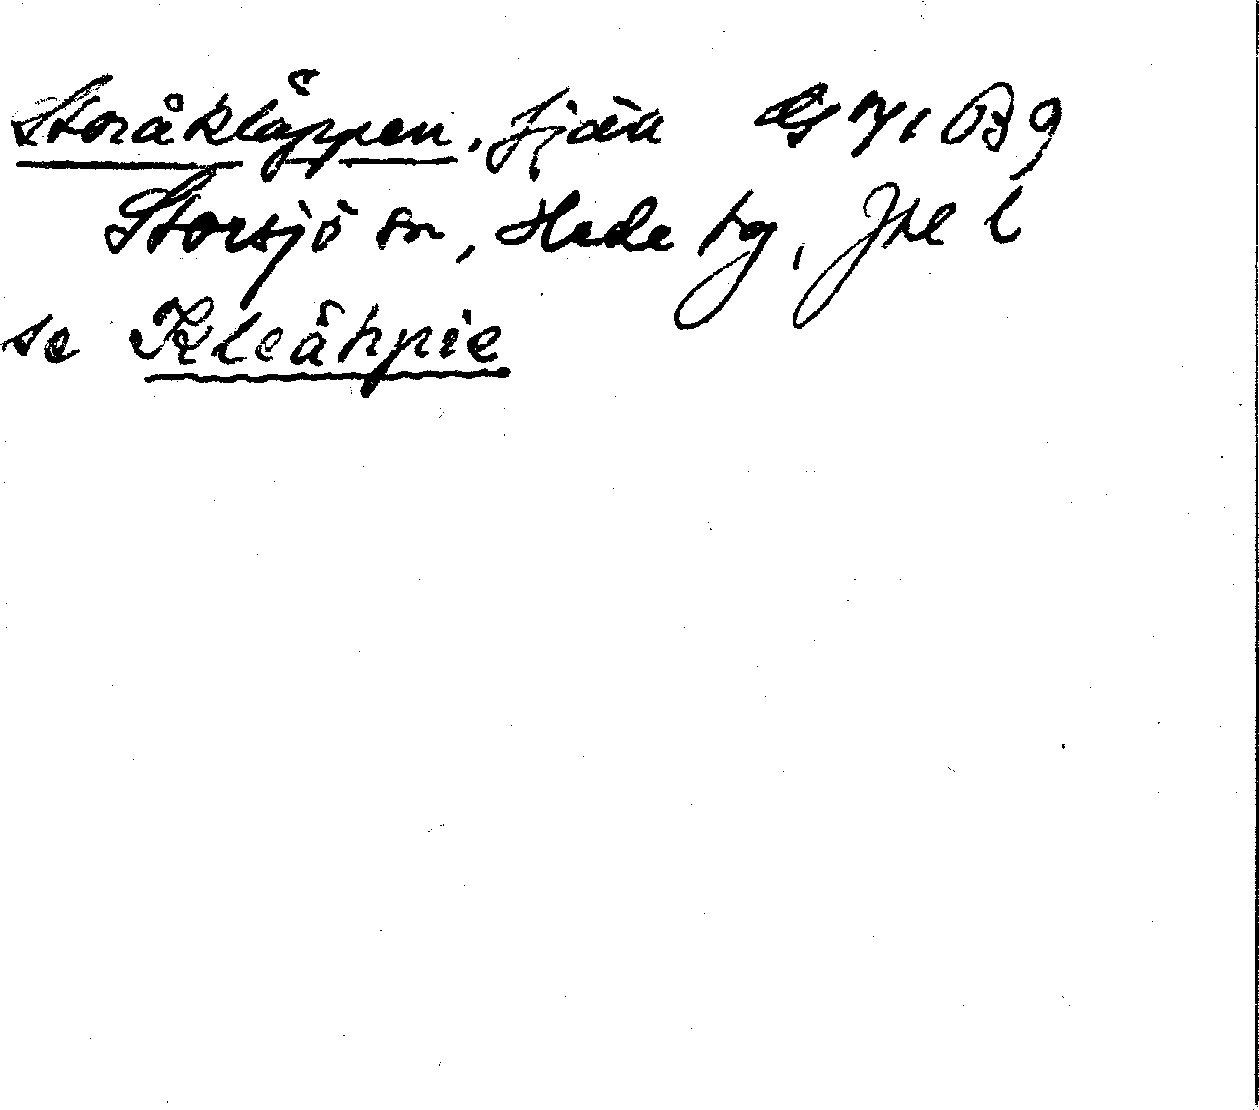 Storåkläppen, fjäll B9
Storsjö sn, Hede tg, Jtl l
se Kleähpie